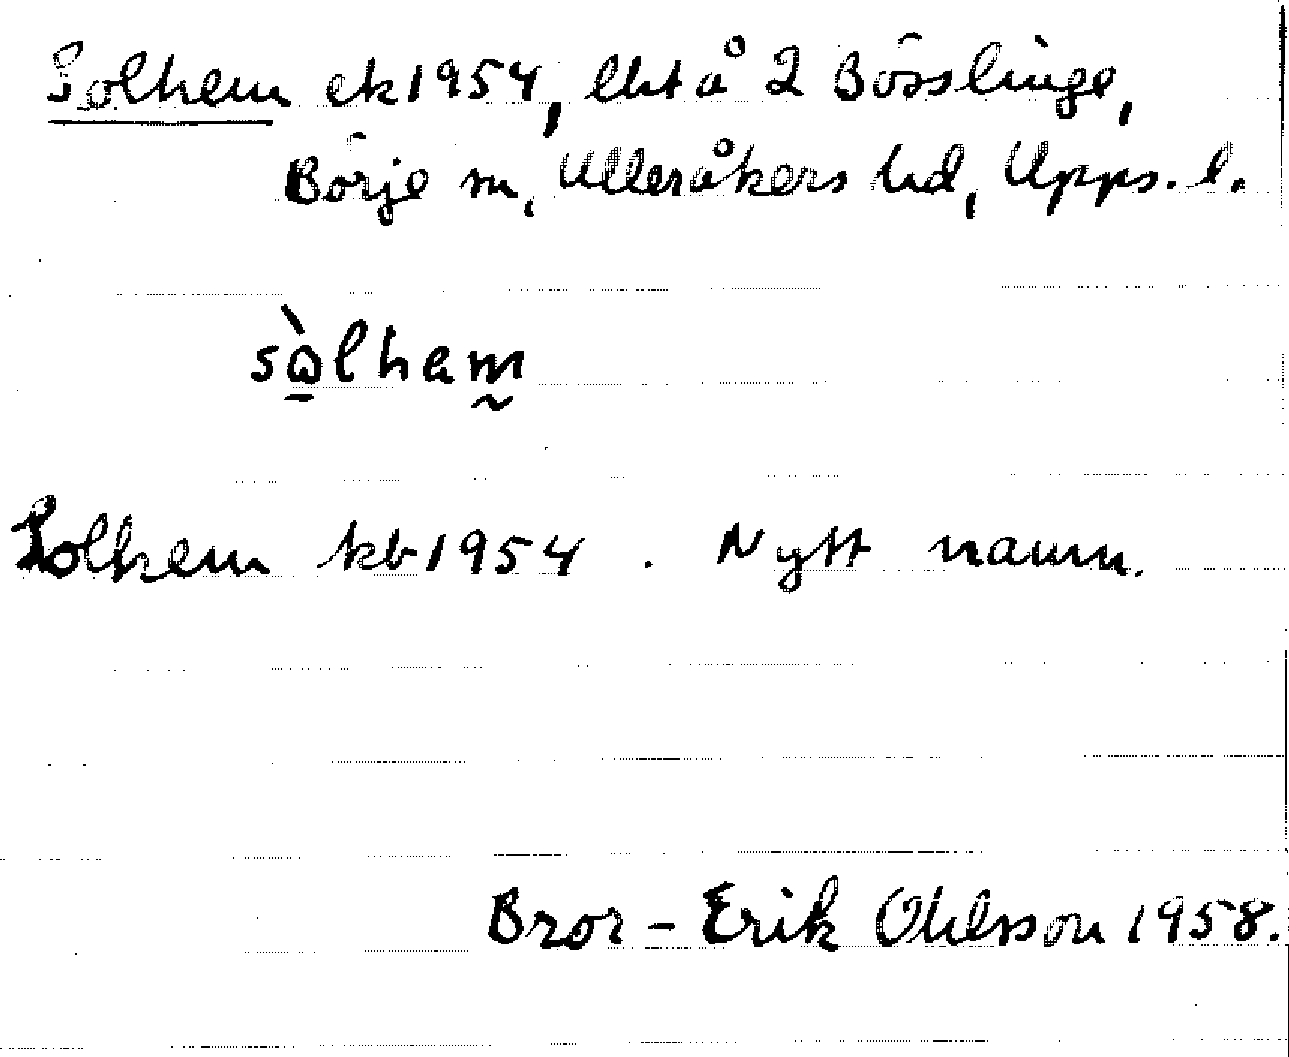 Solhem ek 1954, lht å 2 Bösslinge,
Börje sn, Ulleråkers hd, Upps. l.
sòlham̰
Solhem kb 1954. Nytt namn.
Bror-Erik Ohlsson 1958.